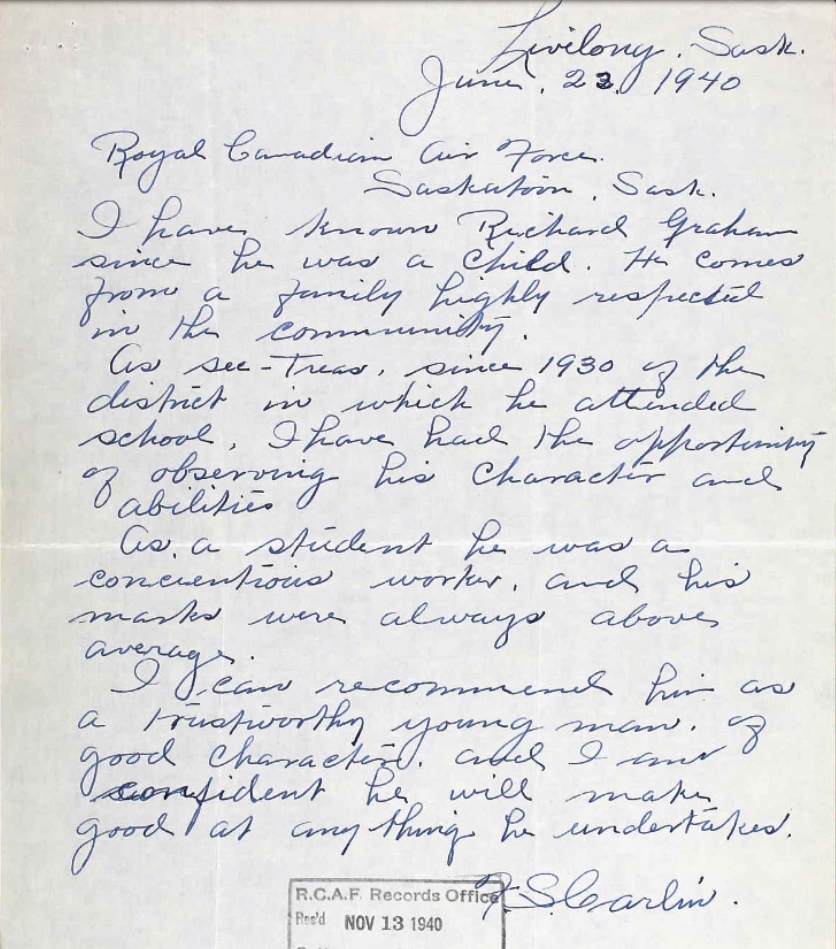 Livelong, Sask.
June, 23, 1940
Royal Canadian Air Force.
Saskatoon, Sask.
I have known Richard Graham
since he was a child. He comes
from a family highly respected
in the community.
As sec-Treas. since 1930 of the
district in which he attended
school, I have had the opportunity
of observing his character and
abilities
As, a student he was a
concientious worker, and his
marks were always above
average.
I can recommend him as
a trustworthy young man, of
good character, and I am
confident he will make
good at anything he undertakes.
F. S. Carlin.
R.C.A.F. Records Office
Rec'd NOV 13 1940